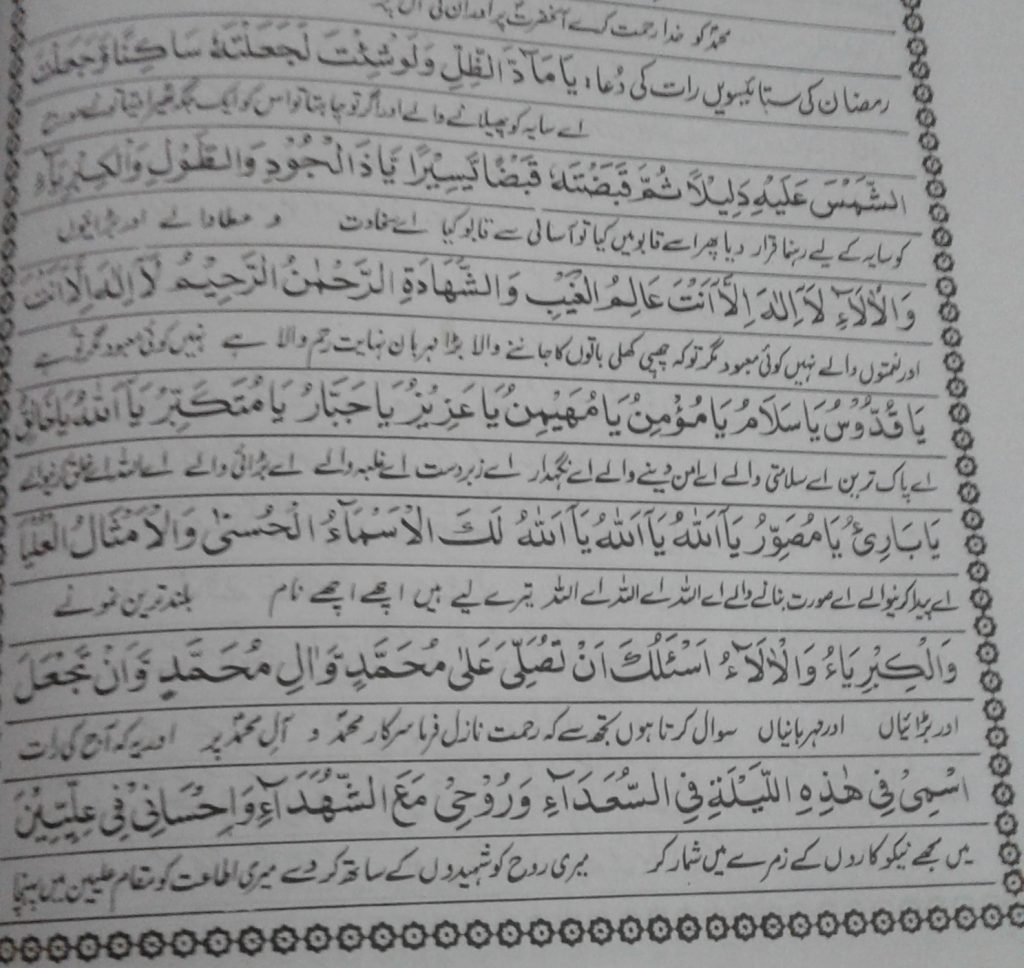 محمدؐ کو خدا رحمت کرے آنحضرتؐ پر اور ان کی آل پر
رمضان کی ستائیسویں رات کی دُعا: يَا مَآدَّ الظِّلِّ وَلَوْ شِئْتَ لَجَعَلْتَهٗ سَاكِنًا وَّجَعَلْتَ
اے سایہ کو پھیلانے والے اور اگر تو چاہتا تو اس کو ایک جگہ ٹھیرا دیتا
الشَّمْسَ عَلَيْهِ دَلِيْلًا ثُمَّ قَبَضْتَهٗ قَبْضًا يَّسِيْرًا يَا ذَالْجُوْدِ وَالطَّوْلِ وَالْكِبْرِيَآءِ
کو سایہ کے لیے رہنما قرار دیا پھر اسے قابو میں کیا تو آسانی سے قابو کیا اے سخاوت و عطا والے اور بڑائیوں
وَالْاٰلَآءِ لَآ اِلٰهَ اِلَّآ اَنْتَ عَالِمُ الْغَيْبِ وَالشَّهَادَةِ الرَّحْمٰنُ الرَّحِيْمُ لَآ اِلٰهَ اِلَّا اَنْتَ
اور نعمتوں والے نہیں کوئی معبود مگر تو کہ چھپی کھلی باتوں کا جاننے والا بڑا مہربان نہایت رحم والا ہے نہیں کوئی معبود مگر تو ہے
يَا قُدُّوْسُ يَا سَلَامُ يَا مُؤْمِنُ يَا مُهَيْمِنُ يَا عَزِيْزُ يَا جَبَّارُ يَا مُتَكَبِّرُ يَآ اَللّٰهُ يَا خَالِقُ
اے پاک ترین اے سلامتی والے اے امن دینے والے اے نگہدار اے زبردست اے غلبہ والے اے بڑائی والے اے اللہ اے خلق کرنیوالے
يَا بَارِئُ يَا مُصَوِّرُ يَآ اَللّٰهُ يَآ اَللّٰهُ يَآ اَللّٰهُ لَكَ الْاَسْمَآءُ الْحُسْنٰى وَالْاَمْثَالُ الْعُلْيَا
اے پیدا کرنیوالے اے صورت بنانے والے اے اللہ اے اللہ اے اللہ تیرے لیے ہیں اچھے اچھے نام بلند ترین نمونے
وَالْكِبْرِيَآءُ وَالْاٰلَآءُ اَسْئَلُكَ اَنْ تُصَلِّىَ عَلٰى مُحَمَّدٍ وَّاٰلِ مُحَمَّدٍ وَّاَنْ تَجْعَلَ
اور بڑائیاں اور مہربانیاں سوال کرتا ہوں تجھ سے کہ رحمت نازل فرما سرکار محمدؐ و آلِ محمدؐ پر اور یہ کہ آج کی رات
اسْمِىْ فِىْ هٰذِهِ اللَّيْلَةِ فِى السُّعَدَآءِ وَرُوْحِىْ مَعَ الشُّهَدَآءِ وَاِحْسَانِىْ فِىْ عِلِّيِّيْنَ
میں مجھے نیکوکاروں کے زمرے میں شمار کر میری روح کو شہیدوں کے ساتھ کر دے میری اطاعت کو مقام علیین میں پہنچا